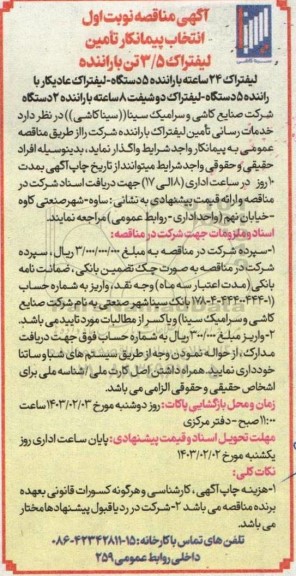 آگهی مناقصه نوبت اول
انتخاب پیمانکار تامین
لیفتراک ۳/۵ تن با راننده
لیفتراک ۲۴ ساعته با راننده ۵ دستگاه-لیفتراک عادیکار با
راننده ۵ دستگاه-لیفتراک دو شیفت ۸ ساعته با راننده ۲ دستگاه
شرکت صنایع کاشی و سرامیک سینا((سینا کاشی)) در نظر دارد
خدمات رسانی تأمین لیفتراک با راننده شرکت را از طریق مناقصه
عمومی به پیمانکار واجد شرایط واگذار نماید، بدینوسیله افراد
حقیقی و حقوقی واجد شرایط میتوانند از تاریخ چاپ آگهی بمدت
۱۰ روز در ساعت اداری (۸ الی ۱۷) جهت دریافت اسناد شرکت در
مناقصه و ارائه قیمت پیشنهادی به نشانی: ساوه-شهر صنعتی کاوه
-خیابان نهم (واحد اداری-روابط عمومی) مراجعه نمایند.
اسناد و ملزومات جهت شرکت در مناقصه:
۱-سپرده شرکت در مناقصه به مبلغ ۳/۰۰۰/۰۰۰/۰۰۰ ریال، سپرده
شرکت در مناقصه به صورت چک تضمین بانکی، ضمانت نامه
بانکی (مدت اعتبار سه ماه) وجه نقد، واریز به شماره حساب
۱۷۸-۴-۴۴۴۰۴۴۴-۱ بانک سینا شهر صنعتی به نام شرکت صنایع
کاشی و سرامیک سینا) و یا کسر از مطالبات مورد تایید می باشد.
۲-واریز مبلغ ۳۰۰/۰۰۰ ریال به شماره حساب فوق جهت دریافت
مدارک، از حواله نمودن وجه از طریق سیستم های شبا و ساتنا
خودداری نمایید. همراه داشتن اصل کارت ملی/شناسه ملی برای
اشخاص حقیقی و حقوقی الزامی می باشد.
زمان و محل بازگشایی پاکات: روز دوشنبه مورخ ۱۴۰۳/۰۲/۰۳ ساعت
۱۱:۰۰ صبح - دفتر مرکزی
مهلت تحویل اسناد و قیمت پیشنهادی: پایان ساعت اداری روز
یکشنبه مورخ ۱۴۰۳/۰۲/۰۲
نکات کلی:
۱-هزینه چاپ آگهی، کارشناسی و هرگونه کسورات قانونی بعهده
برنده مناقصه می باشد ۲-شرکت در رد یا قبول پیشنهادها مختار
می باشد.
تلفن های تماس با کارخانه: ۱۵-۴۲۳۴۲۸۱۱-۰۸۶
داخلی روابط عمومی ۲۵۹